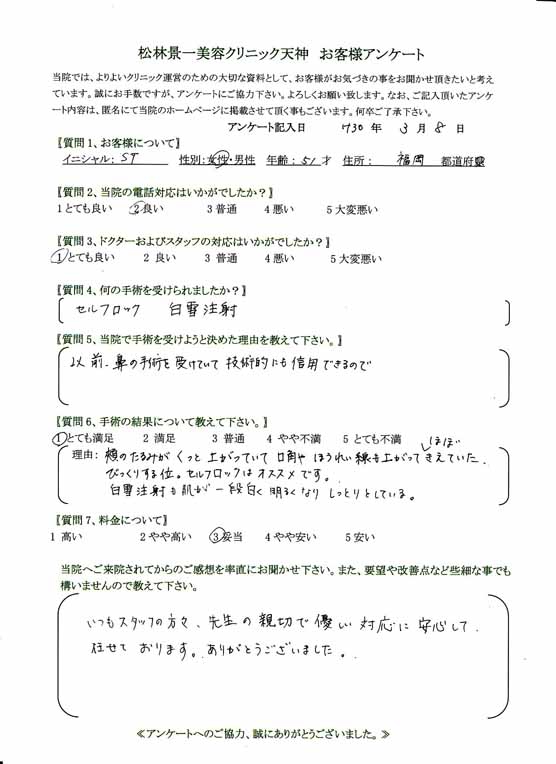 松林景一美容クリニック天神　お客様アンケート
当院では、よりよいクリニック運営のための大切な資料として、お客様がお気づきの事をお聞かせ頂きたいと考え
ています。誠にお手数ですが、アンケートにご協力下さい。よろしくお願い致します。なお、ご記入頂いたアンケ
ート内容は、匿名にて当院のホームページに掲載させて頂く事もございます。何卒ご了承下さい。
アンケート記入日　'30 年　3 月　8 日
〖質問1、お客様について〗
イニシャル: ST　性別:女性・男性　年齢: 51 才　住所:　福岡　都道府県
〖質問2、当院の電話対応はいかがでしたか？〗
1とても良い　2良い　3 普通　4 悪い　5 大変悪い
〖質問3、ドクターおよびスタッフの対応はいかがでしたか？〗
1とても良い　2 良い　3 普通　4 悪い　5 大変悪い
〖質問4、何の手術を受けられましたか？〗
セルフロック　白雪注射
〖質問5、当院で手術を受けようと決めた理由を教えて下さい。〗
以前、鼻の手術を受けていて技術的にも信用できるので
〖質問6、手術の結果について教えて下さい。〗
1とても満足　2 満足　3 普通　4 やや不満　5 とても不満
ほぼ
理由: 頬のたるみがくっと上がっていて口角やほうれい線も上がってきえていた。
びっくりする位。セルフロックはオススメです。
白雪注射も肌が一段白く明るくなりしっとりとしている。
〖質問7、料金について〗
1 高い　2やや高い　3妥当　4やや安い　5安い
当院へご来院されてからのご感想を率直にお聞かせ下さい。また、要望や改善点など些細な事でも
構いませんので教えて下さい。
いつもスタッフの方々、先生の親切で優しい対応に安心して、
任せております。ありがとうございました。
≪アンケートへのご協力、誠にありがとうございました。≫